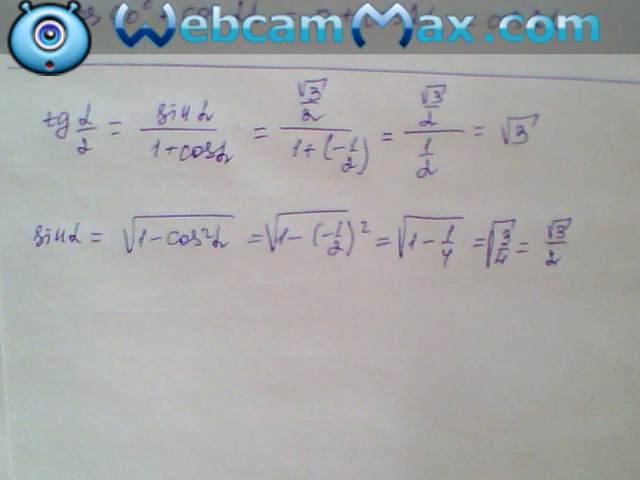 WebcamMax.com
tg α/2 = sin α / (1 + cos α) = (√3/2) / (1 + (-1/2)) = (√3/2) / (1/2) = √3
sin α = √(1 - cos²α) = √(1 - (-1/2)²) = √(1 - 1/4) = √(3/4) = √3/2